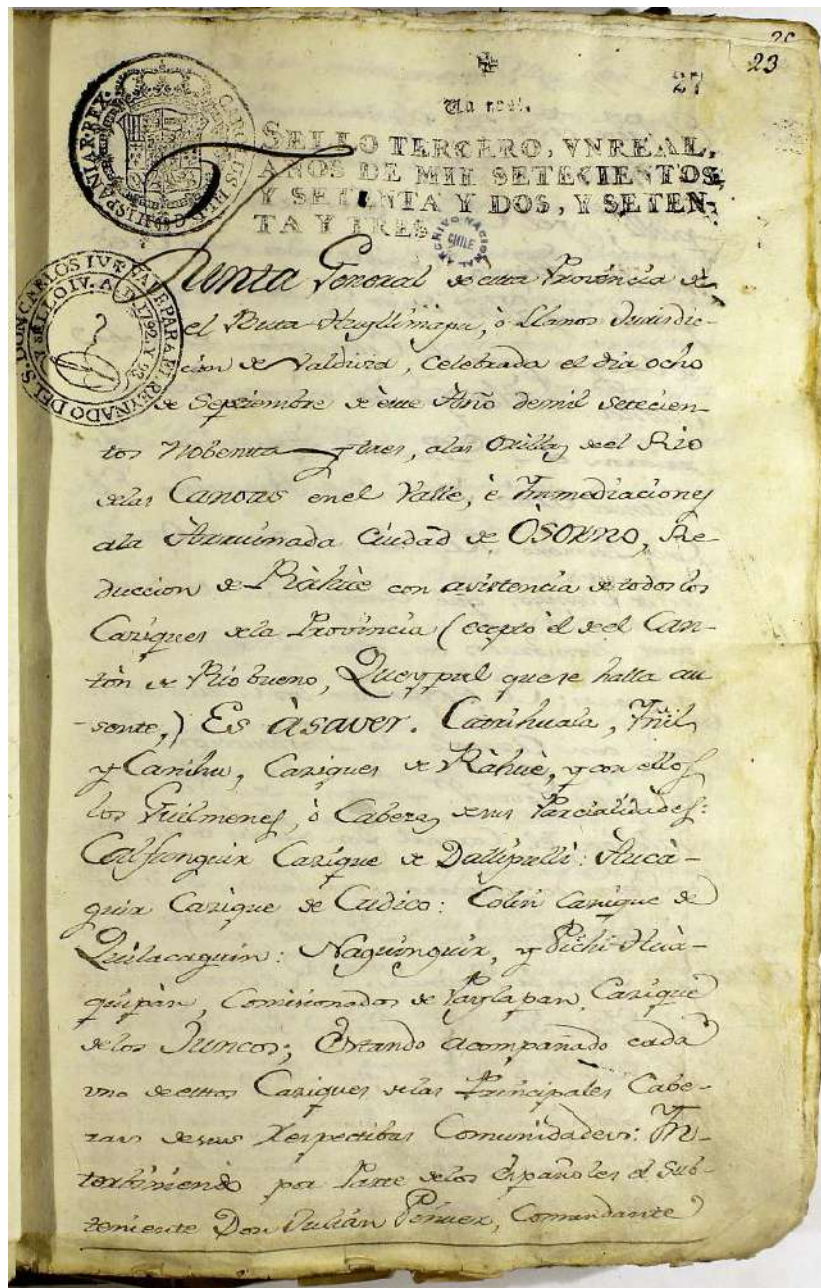 26
23
27
Un real.
SELLO TERCERO, VNREAL,
AÑOS DE MIL SETECIENTOS
Y SETENTA Y DOS, Y SETEN-
TA Y TRES
HISPANIAR. REX
CAROLUS III D G
ARCHIVO NACIONAL
CHILE
VALE PARA EL REYNADO DEL S. DON CARLOS IV
Y SELLO IV. A D 1792. Y 93.
Junta General de esta Provincia de
el Buta-Huyllimapu, ò Llanos Jurisdic-
ción de Valdivia, Celebrada el dia ocho
de Septiembre de este Año demil Setecien-
tos Nobenta y tres, alas Orillas de el Rio
delas Canoas en el Valle, è Inmediaciones
ala Arruinada Ciudad de OSORNO, Re-
duccion de Ràhuè con asistencia de todos los
Caziques dela Provincia (ecepto èl de el Can-
tòn de Rio bueno, Queypul que se halla au
-sente,) Es àsaver. Catrihuala, Iñil,
y Canihu, Caziques de Ràhuè, y con ellos
los Guilmenes, ò Cabezas desus Parcialidades:
Calfunguir Cazique de Dallipulli: Auca-
guir Cazique de Cudico: Colin Cazique de
Quilacaguin: Naguinguir, y Pichi-Hua-
quipàn, Comisionados de Paylapan, Cazique
delos Juncos; Estando acompañado cada
uno de estos Caziques delas Principales Cabe-
zas desus Respectibas Comunidades: In-
terbiniendo por Parte delos Españoles el Sub-
teniente Don Julián Piñuer, Comandante